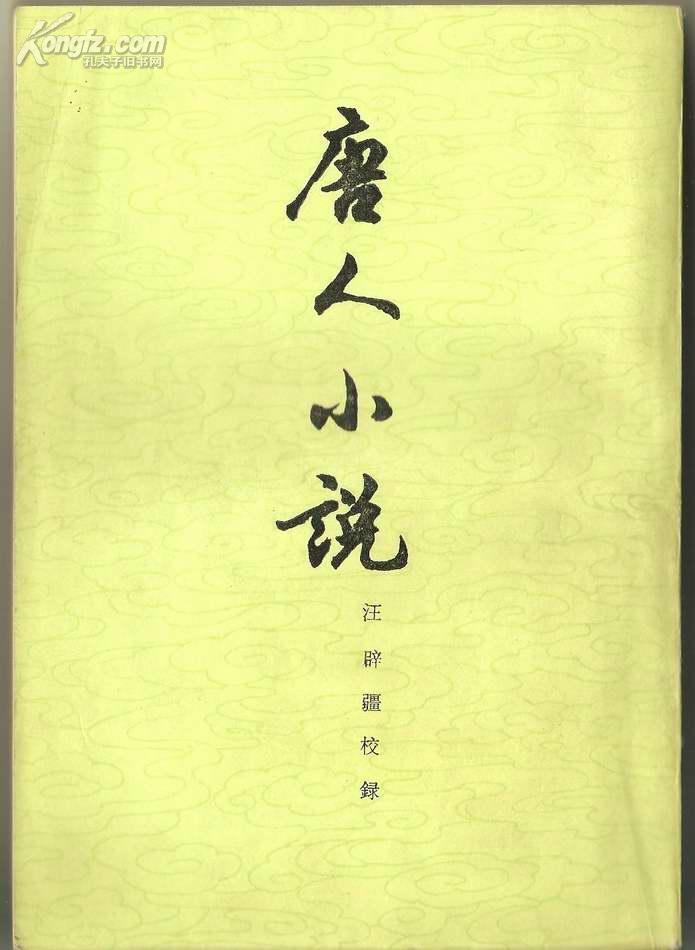 Kongfz.com
孔夫子旧书网
唐人小説
汪辟疆校録